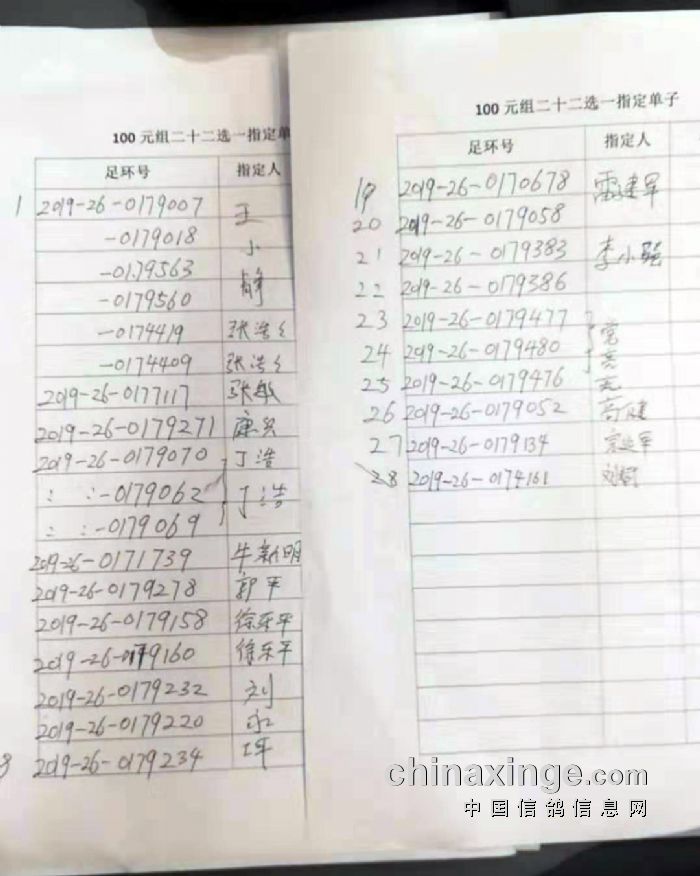 100 元组二十二选一指定单
足环号 指定人
1 2019-26-0179007 王
-0179018 小
-0179563
-0179560 静
-0174419 张浩
-0174409 张浩
2019-26-0177117 张敏
2019-26-0179271 康
2019-26-0179070 丁浩
: :-0179062 丁浩
: :-0179069
2019-26-0171739 牛新明
2019-26-0179278 郭平
2019-26-0179158 徐乐平
2019-26-0179160 徐乐平
2019-26-0179232 刘
2019-26-0179220 永
8 2019-26-0179234 坪
100 元组二十二选一指定单子
足环号 指定人
19 2019-26-0170678 雷建军
20 2019-26-0179058
21 2019-26-0179383 李小强
22 2019-26-0179386
23 2019-26-0179477
24 2019-26-0179480
25 2019-26-0179476
26 2019-26-0179052 高健
27 2019-26-0179134
28 2019-26-0174161 刘
chinaxinge.com
中国信鸽信息网